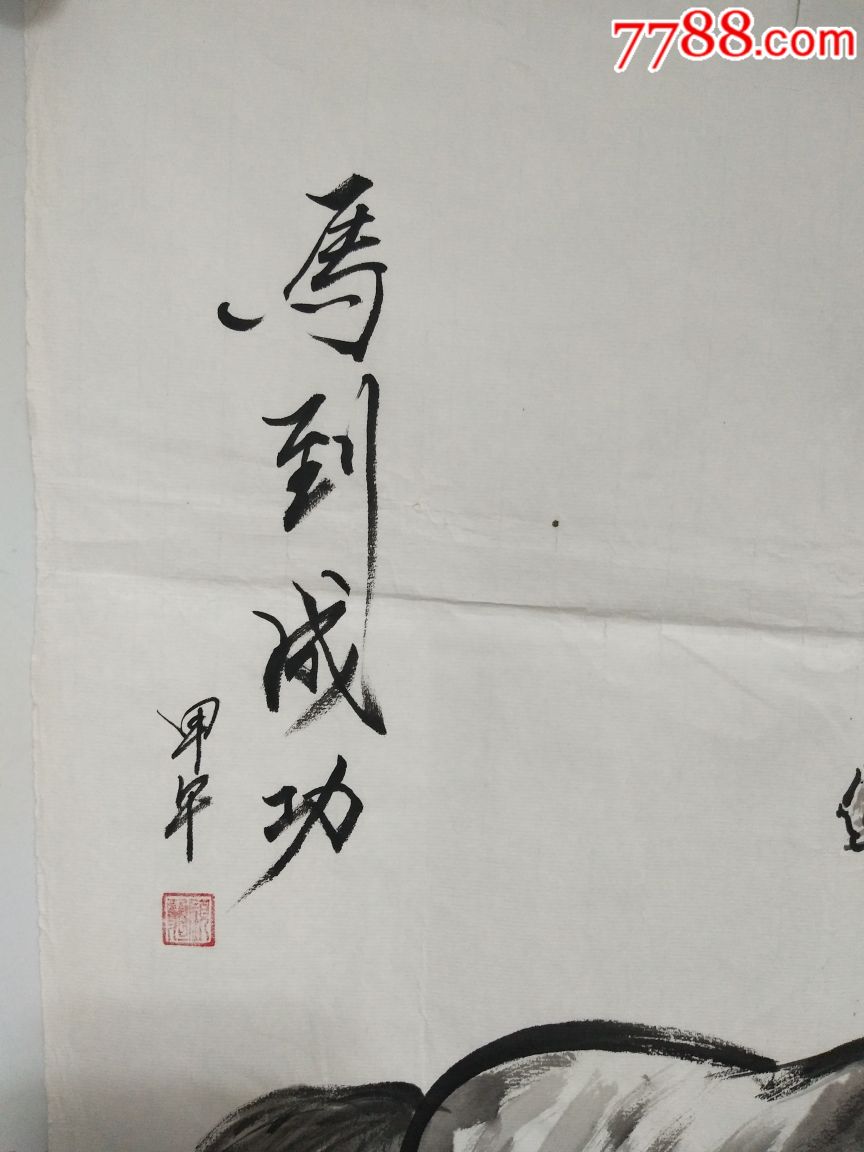 7788.com
馬到成功